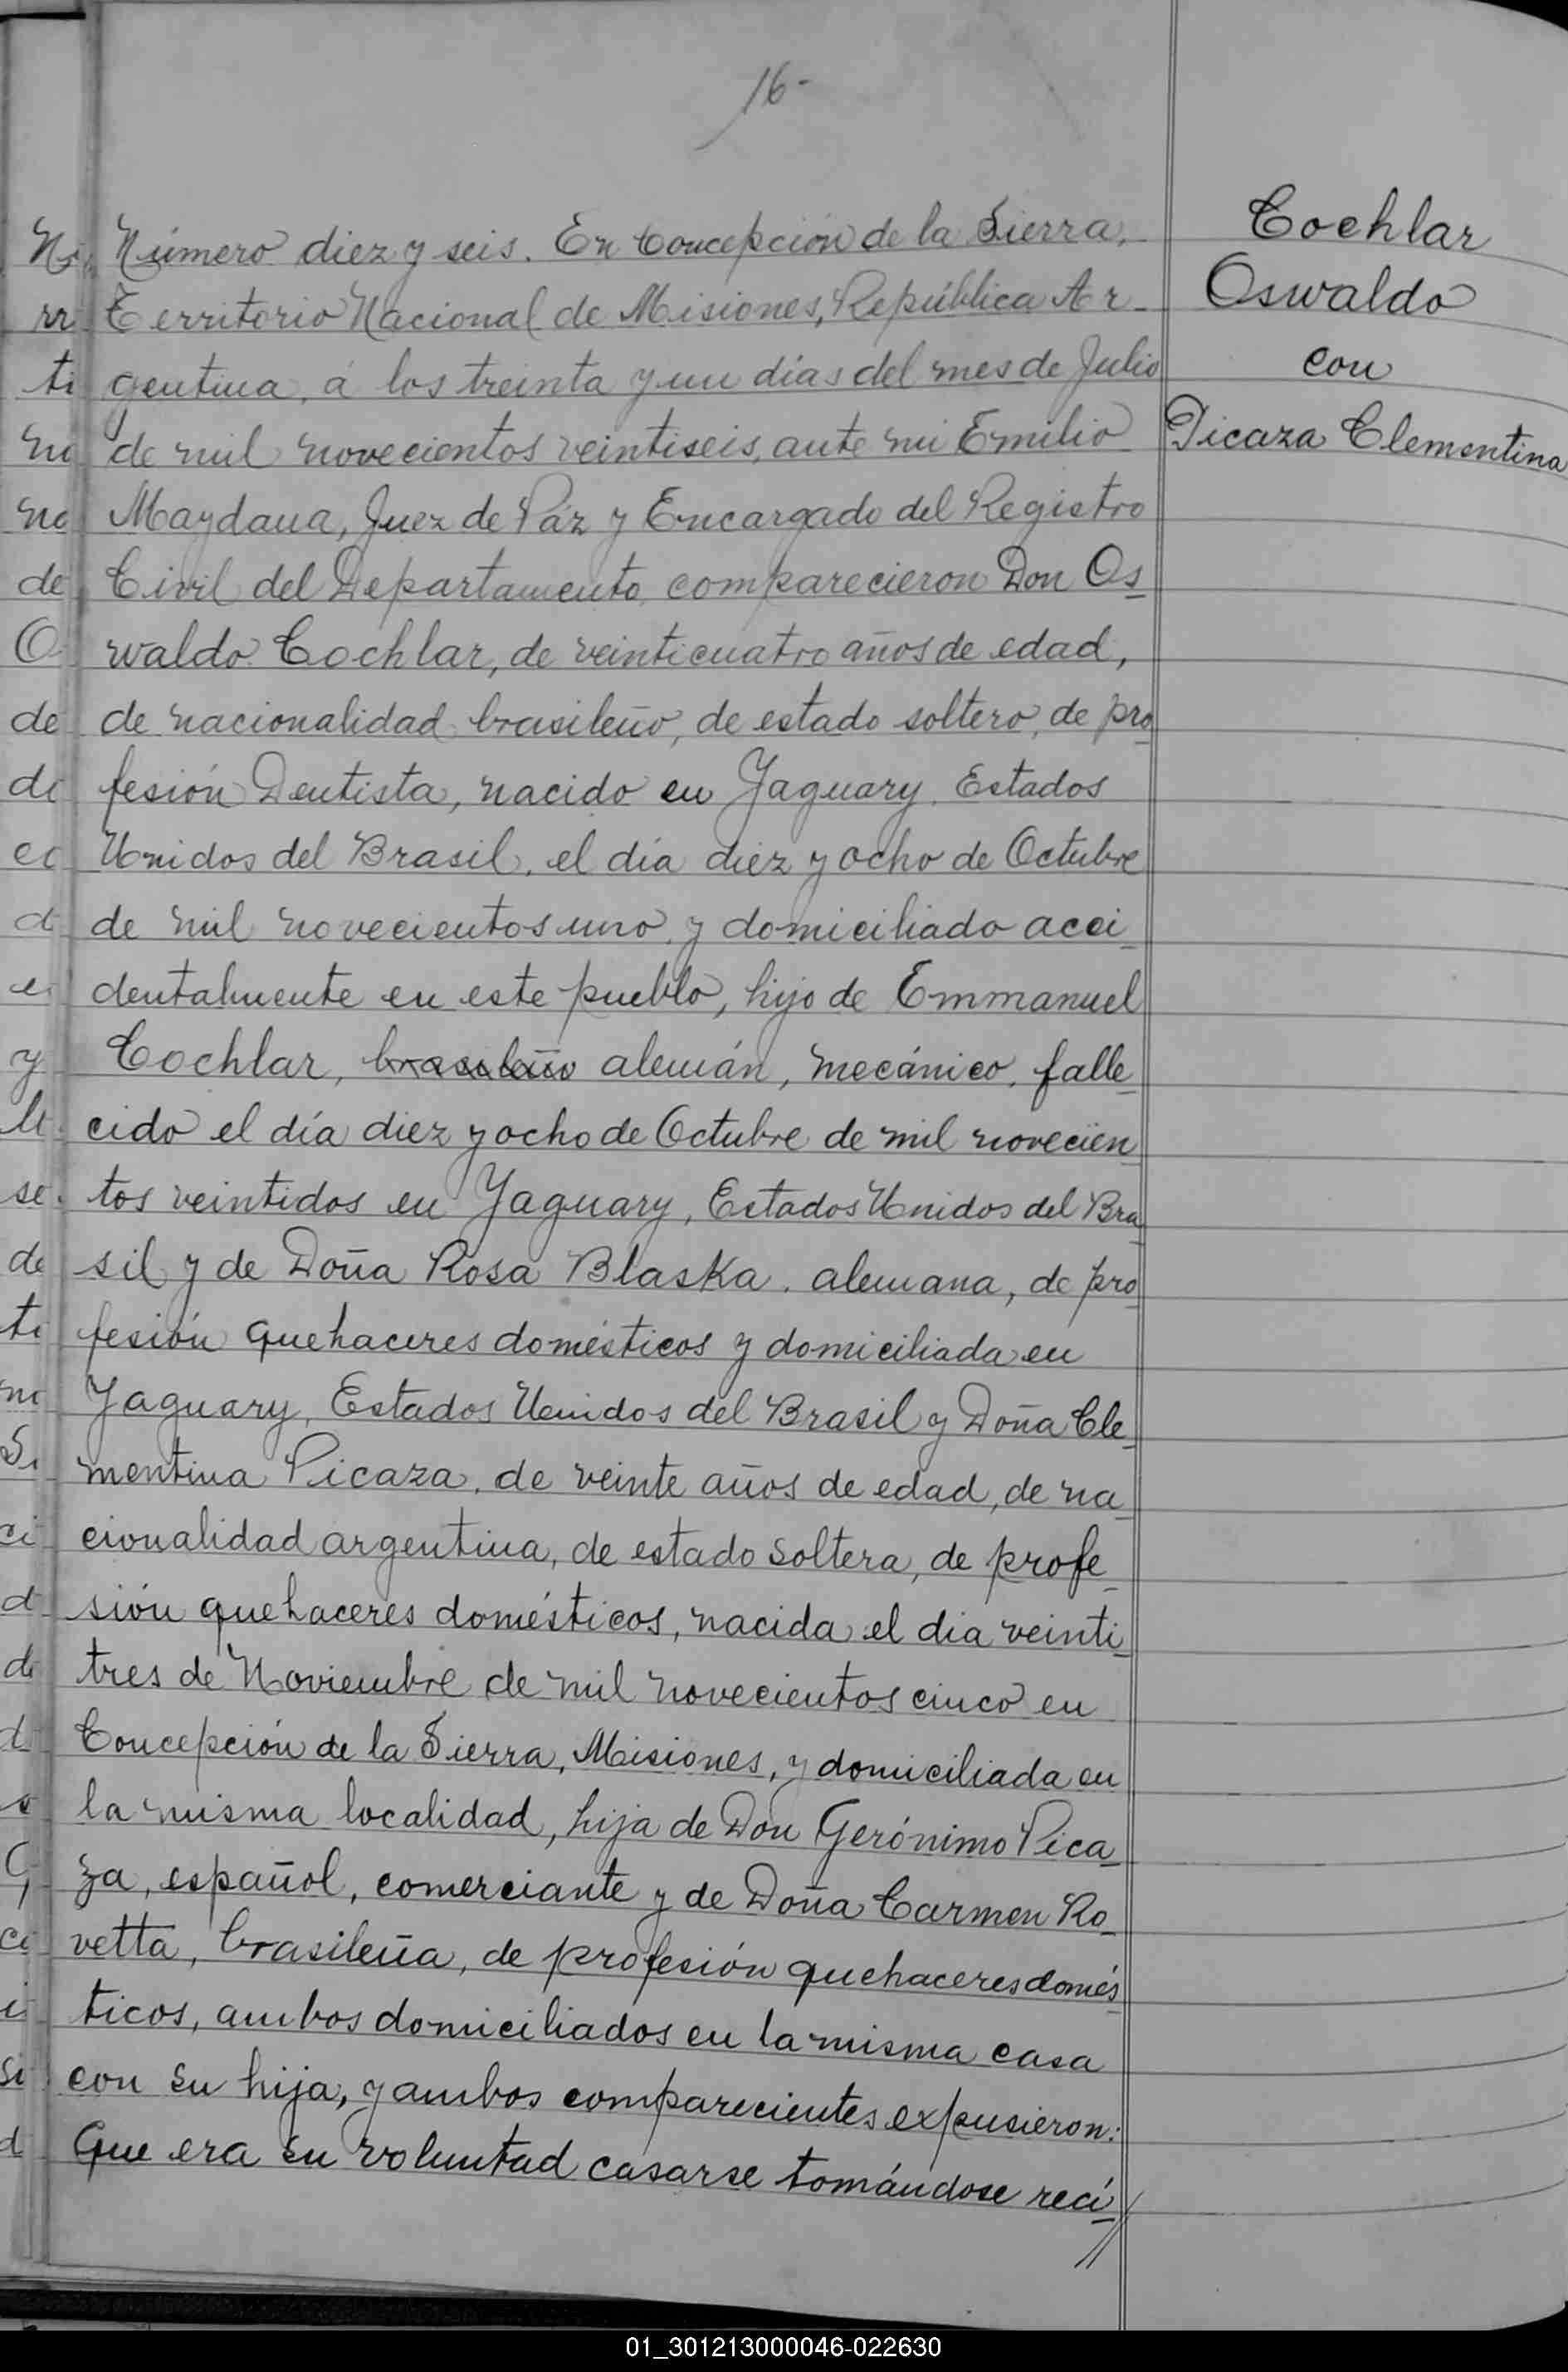 16-
Número diez y seis. En Concepción de la Sierra,
Territorio Nacional de Misiones, República Ar-
gentina, á los treinta y un días del mes de Julio
de mil novecientos veintiseis, ante mi Emilio
Maydana, Juez de Páz y Encargado del Registro
Civil del Departamento comparecieron Don Os
waldo Cochlar, de veinticuatro años de edad,
de nacionalidad brasileño, de estado soltero, de pro
fesión Dentista, nacido en Yaguary, Estados
Unidos del Brasil, el día diez y ocho de Octubre
de mil novecientos uno, y domiciliado acci
dentalmente en este pueblo, hijo de Emmanuel
Cochlar, brasileño alemán, mecánico, falle
cido el día diez y ocho de Octubre de mil novecien
tos veintidos en Yaguary, Estados Unidos del Bra
sil y de Doña Rosa Blaska, alemana, de pro
fesión quehaceres domésticos y domiciliada en
Yaguary, Estados Unidos del Brasil y Doña Cle
mentina Picaza, de veinte años de edad, de na
cionalidad argentina, de estado soltera, de profe
sión quehaceres domésticos, nacida el dia veinti
tres de Noviembre de mil novecientos cinco en
Concepción de la Sierra, Misiones, y domiciliada en
la misma localidad, hija de Don Gerónimo Pica
za, español, comerciante y de Doña Carmen Ro
vetta, brasileña, de profesión quehaceres domés
ticos, ambos domiciliados en la misma casa
con su hija, y ambos comparecientes expusieron:
Que era su voluntad casarse tomándose recí
Cochlar
Oswaldo
con
Picaza Clementina
01_301213000046-022630